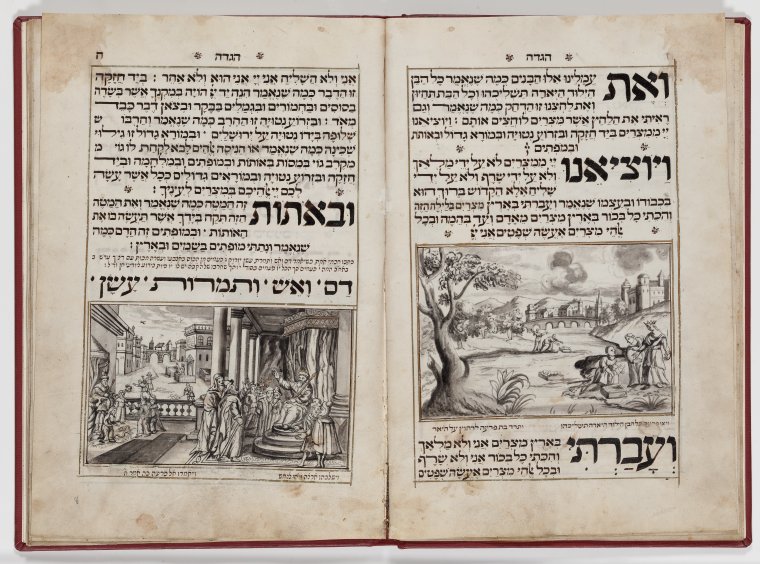 הגדה
ואת
עמלינו אלו הבנים כמה שנאמר כל הבן
הילוד היארה תשליכהו וכל הבת תחיון
ואת לחצנו זו הדחק כמה שנאמר וגם
ראיתי את הלחץ אשר מצרים לוחצים אותם : ויוציאנו
יי ממצרים ביד חזקה ובזרוע נטויה ובמורא גדול ובאותות
ובמופתים
ויוציאנו
יי ממצרים לא על ידי מלאך
ולא על ידי שרף ולא על ידי
שליח אלא הקדוש ברוך הוא
בכבודו ובעצמו שנאמר ועברתי בארץ מצרים בלילה הזה
והכתי כל בכור בארץ מצרים מאדם ועד בהמה ובכל
אלהי מצרים אעשה שפטים אני יי
ויצו פרעה כל הבן הילוד היארה תשליכהו
ותרד בת פרעה לרחוץ על היאר
ועברתי
בארץ מצרים אני ולא מלאך
והכתי כל בכור אני ולא שרף
ובכל אלהי מצרים אעשה שפטים
ה
הגדה
אני ולא השליח אני יי אני הוא ולא אחר : ביד חזקה
זו הדבר כמה שנאמר הנה יד יי הויה במקנך אשר בשדה
בסוסים ובחמורים ובגמלים בבקר ובצאן דבר כבד
מאד : ובזרוע נטויה זו החרב כמה שנאמר וחרבו
שלופה בידו נטויה על ירושלים ובמורא גדול זו גילוי
שכינה כמה שנאמר או הניסה אלהים לבא לקחת לו גוי
מקרב גוי במסות באותות ובמופתים ובמלחמה וביד
חזקה ובזרוע נטויה ובמוראים גדולים ככל אשר עשה
לכם יי אלהיכם במצרים לעיניך :
ובאתות
זה המטה כמה שנאמר ואת המטה
הזה תקח בידך אשר תעשה בו את
האותות ובמופתים זה הדם כמה
שנאמר ונתתי מופתים בשמים ובארץ :
דם ואש ותמרות עשן